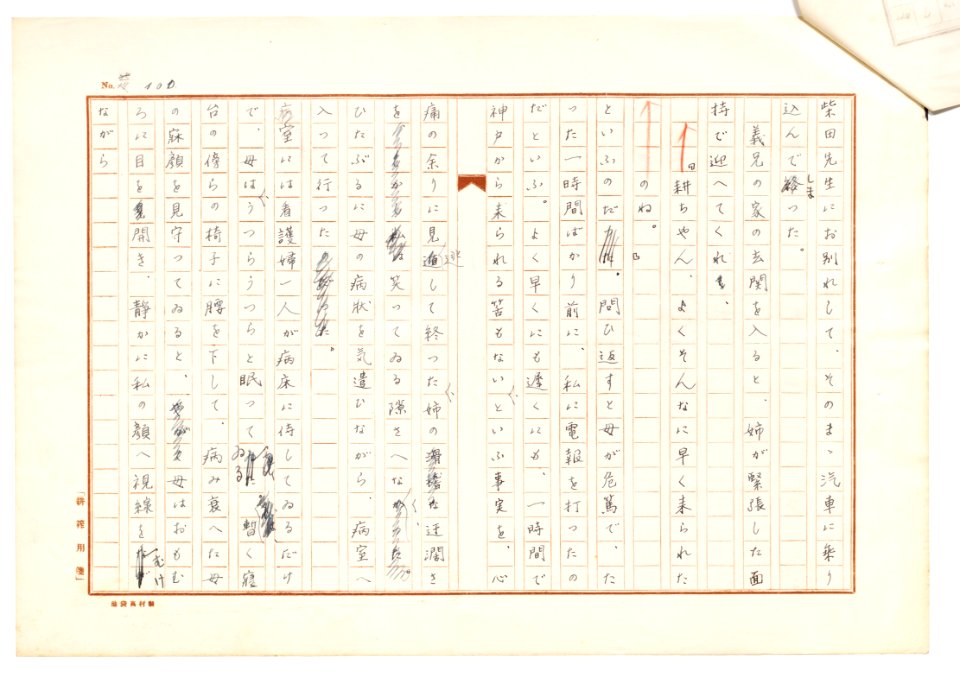 No. 100
柴田先生にお別れして、そのまゝ汽車に乗り
込んでしまつた。
義兄の家の玄関を入ると、姉が緊張した面
持で迎へてくれ
耕ちやん、よくそんなに早く来られた
のね。
といふのだ。問ひ返すと母が危篤で、た
つた一時間ばかり前に、私に電報を打つたの
だといふ。よく早くにも遅くにも、一時間で
神戸から来られる筈もないといふ事実を、心
痛の余りに見逃して終つた姉の迂濶さ
を笑つてゐる隙さへな
ひたぶるに母の病状を気遣ひながら、病室へ
入つて行つた。
病室には看護婦一人が病床に侍してゐるだけ
で、母はうつらうつらと眠つてゐる 暫く寝
台の傍らの椅子に腰を下して、病み衰へた母
の寐顔を見守つてゐると、母はおもむ
ろに目を開き、静かに私の顔へ視線をむけ
ながら